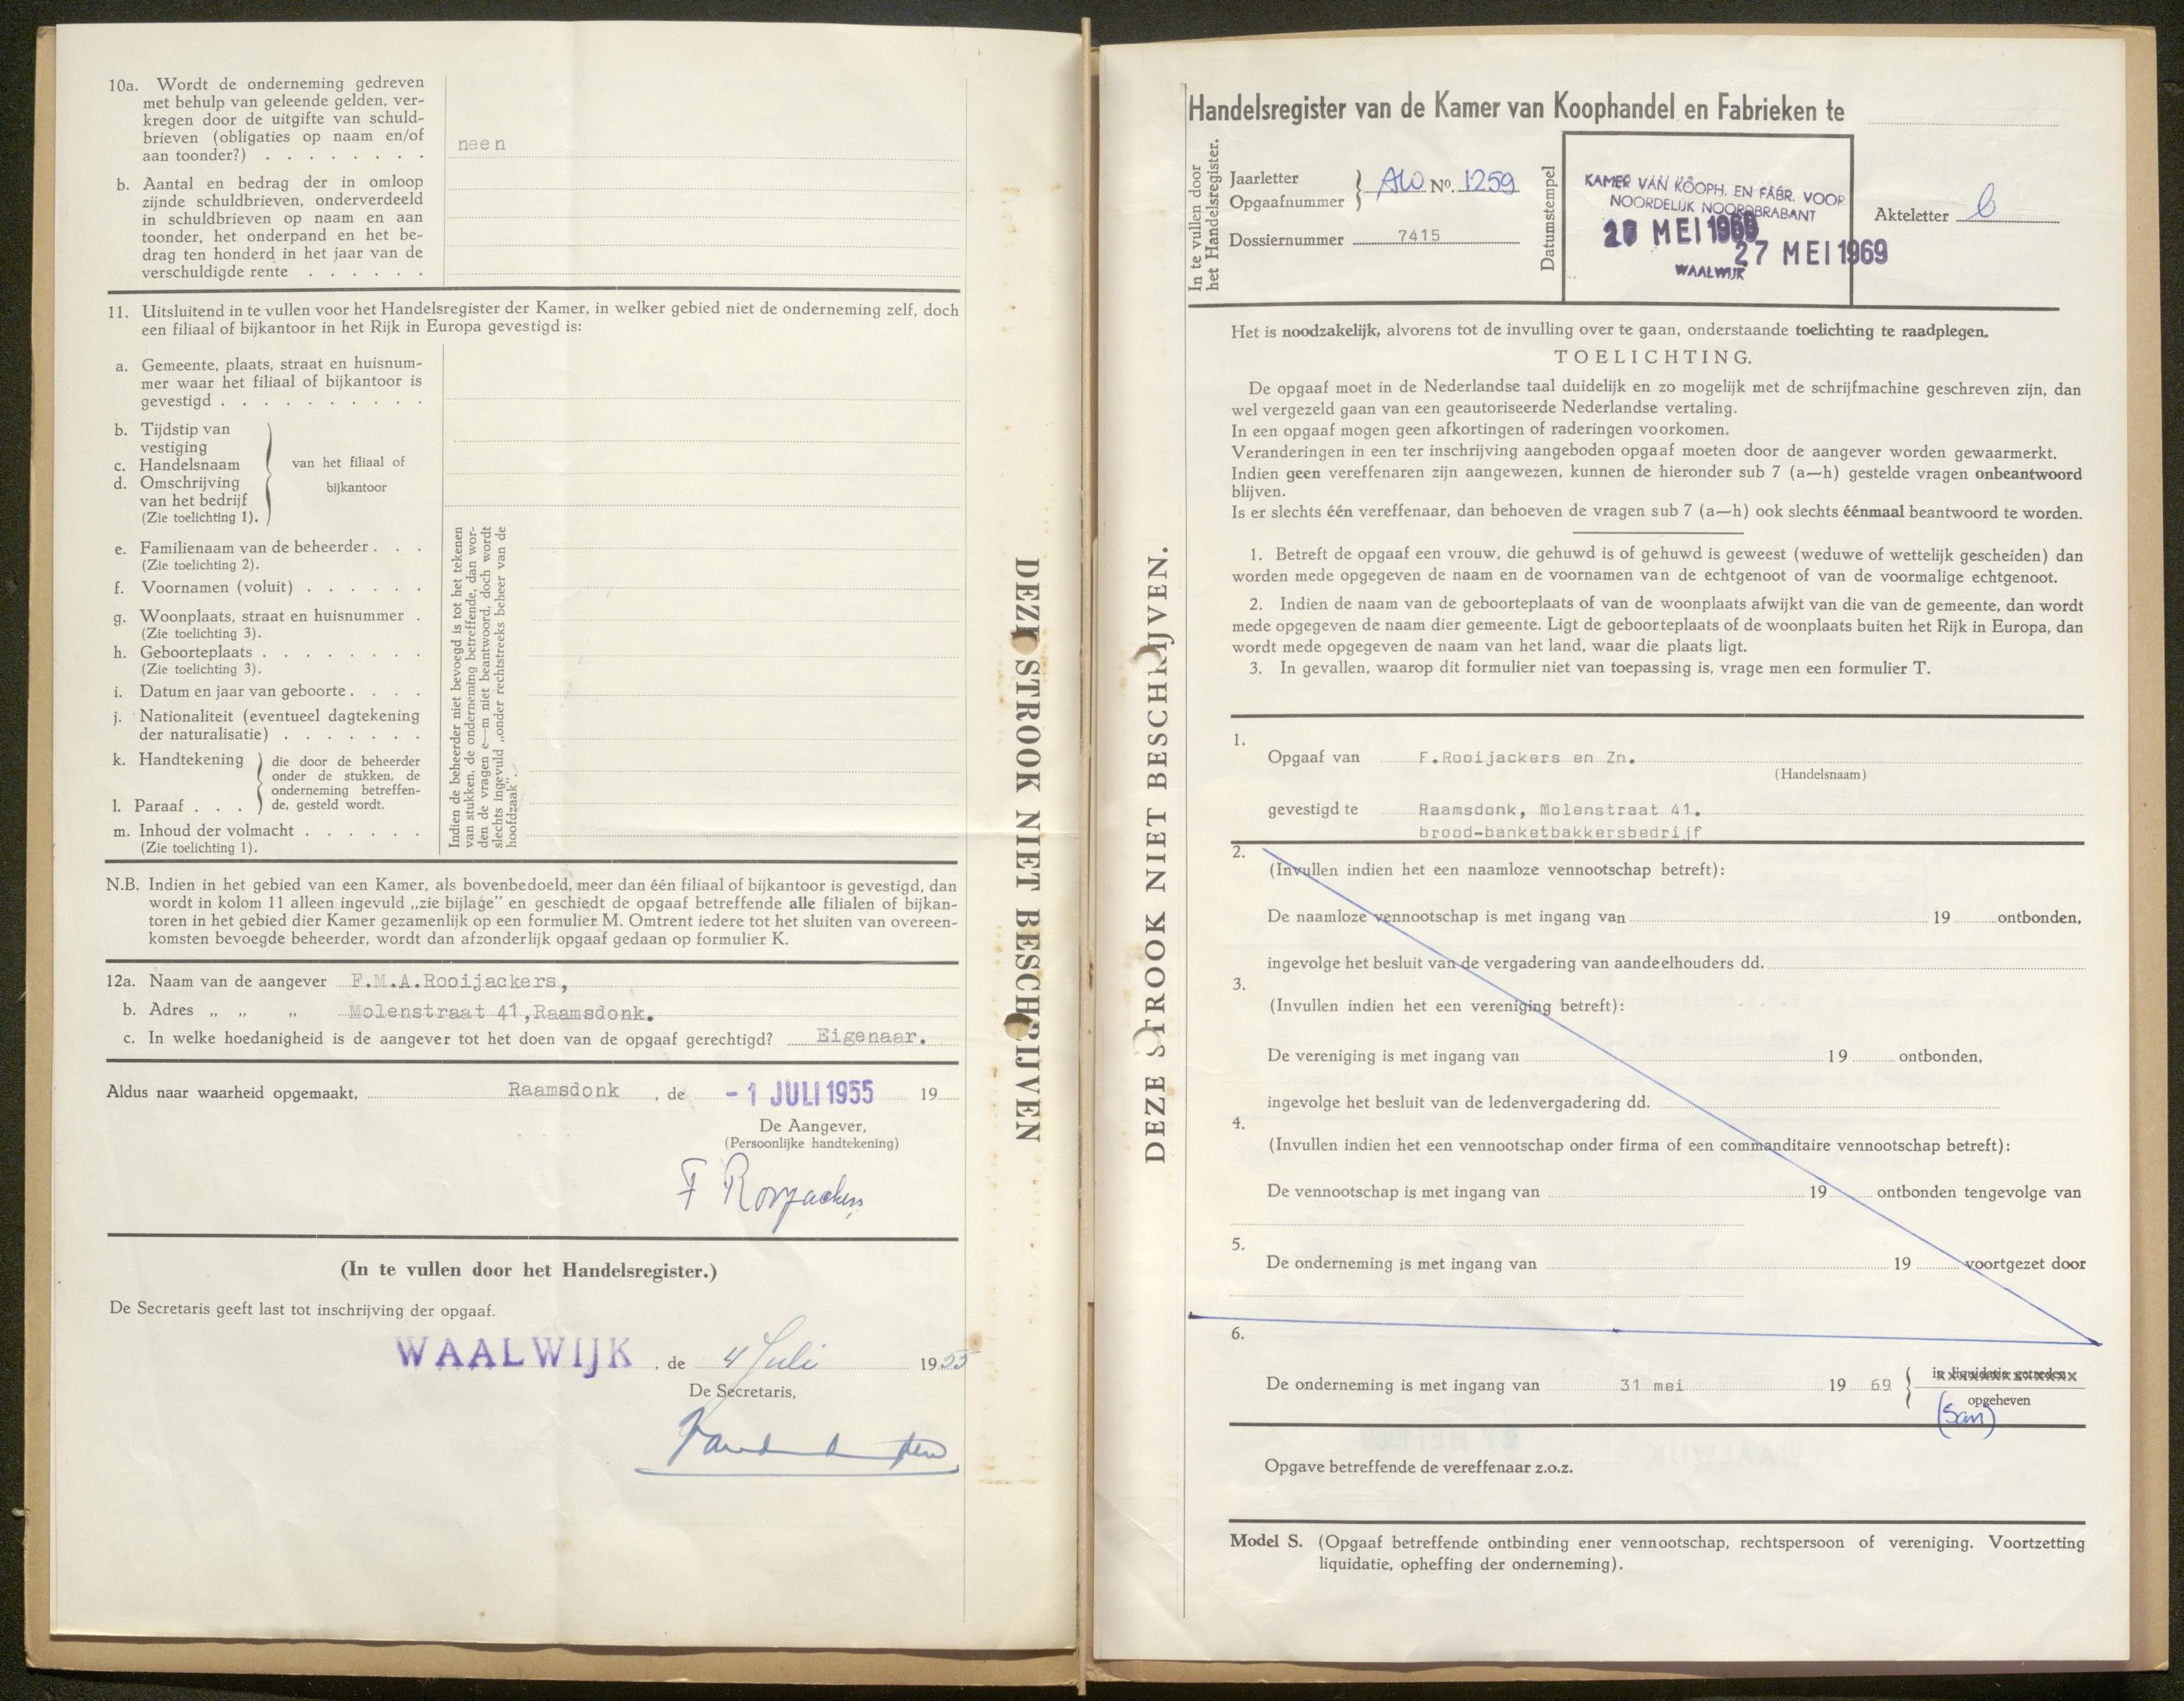 10a. Wordt de onderneming gedreven
met behulp van geleende gelden, ver-
kregen door de uitgifte van schuld-
brieven (obligaties op naam en/of
aan toonder?) . . . . . . . .
neen
b. Aantal en bedrag der in omloop
zijnde schuldbrieven, onderverdeeld
in schuldbrieven op naam en aan
toonder, het onderpand en het be-
drag ten honderd in het jaar van de
verschuldigde rente . . . . . .
11. Uitsluitend in te vullen voor het Handelsregister der Kamer, in welker gebied niet de onderneming zelf, doch
een filiaal of bijkantoor in het Rijk in Europa gevestigd is:
a. Gemeente, plaats, straat en huisnum-
mer waar het filiaal of bijkantoor is
gevestigd . . . . . . . . . .
b. Tijdstip van
vestiging
c. Handelsnaam
d. Omschrijving
van het bedrijf
(Zie toelichting 1).
van het filiaal of
bijkantoor
e. Familienaam van de beheerder . . .
(Zie toelichting 2).
f. Voornamen (voluit) . . . . . .
g. Woonplaats, straat en huisnummer .
(Zie toelichting 3).
h. Geboorteplaats . . . . . . . .
(Zie toelichting 3).
i. Datum en jaar van geboorte . . . .
j. Nationaliteit (eventueel dagtekening
der naturalisatie) . . . . . . .
k. Handtekening
l. Paraaf . . .
die door de beheerder
onder de stukken, de
onderneming betreffen-
de, gesteld wordt.
m. Inhoud der volmacht . . . . . .
(Zie toelichting 1).
Indien de beheerder niet bevoegd is tot het tekenen
van stukken, de onderneming betreffende, dan wor-
den de vragen e—m niet beantwoord, doch wordt
slechts ingevuld „onder rechtstreeks beheer van de
hoofdzaak".
N.B. Indien in het gebied van een Kamer, als bovenbedoeld, meer dan één filiaal of bijkantoor is gevestigd, dan
wordt in kolom 11 alleen ingevuld „zie bijlage" en geschiedt de opgaaf betreffende alle filialen of bijkan-
toren in het gebied dier Kamer gezamenlijk op een formulier M. Omtrent iedere tot het sluiten van overeen-
komsten bevoegde beheerder, wordt dan afzonderlijk opgaaf gedaan op formulier K.
12a. Naam van de aangever F.M.A.Rooijackers,
b. Adres „ „ „ Molenstraat 41,Raamsdonk.
c. In welke hoedanigheid is de aangever tot het doen van de opgaaf gerechtigd? Eigenaar.
Aldus naar waarheid opgemaakt, Raamsdonk , de - 1 JULI 1955 19
De Aangever,
(Persoonlijke handtekening)
F Rooyackers
(In te vullen door het Handelsregister.)
De Secretaris geeft last tot inschrijving der opgaaf.
WAALWIJK , de 4 Juli 1955
De Secretaris,
DEZE STROOK NIET BESCHRIJVEN
DEZE STROOK NIET BESCHRIJVEN.
Handelsregister van de Kamer van Koophandel en Fabrieken te
In te vullen door
het Handelsregister.
Jaarletter
Opgaafnummer
AW No. 1259
Dossiernummer 7415
Datumstempel
KAMER VAN KOOPH. EN FABR. VOOR
NOORDELIJK NOORDBRABANT
MEI 1969
27 MEI 1969
WAALWIJK
Akteletter b
Het is noodzakelijk, alvorens tot de invulling over te gaan, onderstaande toelichting te raadplegen.
TOELICHTING.
De opgaaf moet in de Nederlandse taal duidelijk en zo mogelijk met de schrijfmachine geschreven zijn, dan
wel vergezeld gaan van een geautoriseerde Nederlandse vertaling.
In een opgaaf mogen geen afkortingen of raderingen voorkomen.
Veranderingen in een ter inschrijving aangeboden opgaaf moeten door de aangever worden gewaarmerkt.
Indien geen vereffenaren zijn aangewezen, kunnen de hieronder sub 7 (a—h) gestelde vragen onbeantwoord
blijven.
Is er slechts één vereffenaar, dan behoeven de vragen sub 7 (a—h) ook slechts éénmaal beantwoord te worden.
1. Betreft de opgaaf een vrouw, die gehuwd is of gehuwd is geweest (weduwe of wettelijk gescheiden) dan
worden mede opgegeven de naam en de voornamen van de echtgenoot of van de voormalige echtgenoot.
2. Indien de naam van de geboorteplaats of van de woonplaats afwijkt van die van de gemeente, dan wordt
mede opgegeven de naam dier gemeente. Ligt de geboorteplaats of de woonplaats buiten het Rijk in Europa, dan
wordt mede opgegeven de naam van het land, waar die plaats ligt.
3. In gevallen, waarop dit formulier niet van toepassing is, vrage men een formulier T.
1.
Opgaaf van F.Rooijackers en Zn.
(Handelsnaam)
gevestigd te Raamsdonk, Molenstraat 41.
brood-banketbakkersbedrijf
2.
(Invullen indien het een naamloze vennootschap betreft):
De naamloze vennootschap is met ingang van 19 ontbonden,
ingevolge het besluit van de vergadering van aandeelhouders dd.
3.
(Invullen indien het een vereniging betreft):
De vereniging is met ingang van 19 ontbonden,
ingevolge het besluit van de ledenvergadering dd.
4.
(Invullen indien het een vennootschap onder firma of een commanditaire vennootschap betreft):
De vennootschap is met ingang van 19 ontbonden tengevolge van
5.
De onderneming is met ingang van 19 voortgezet door
6.
De onderneming is met ingang van 31 mei 19 69
in liquidatie getreden
opgeheven
(San)
Opgave betreffende de vereffenaar z.o.z.
Model S. (Opgaaf betreffende ontbinding ener vennootschap, rechtspersoon of vereniging. Voortzetting
liquidatie, opheffing der onderneming).